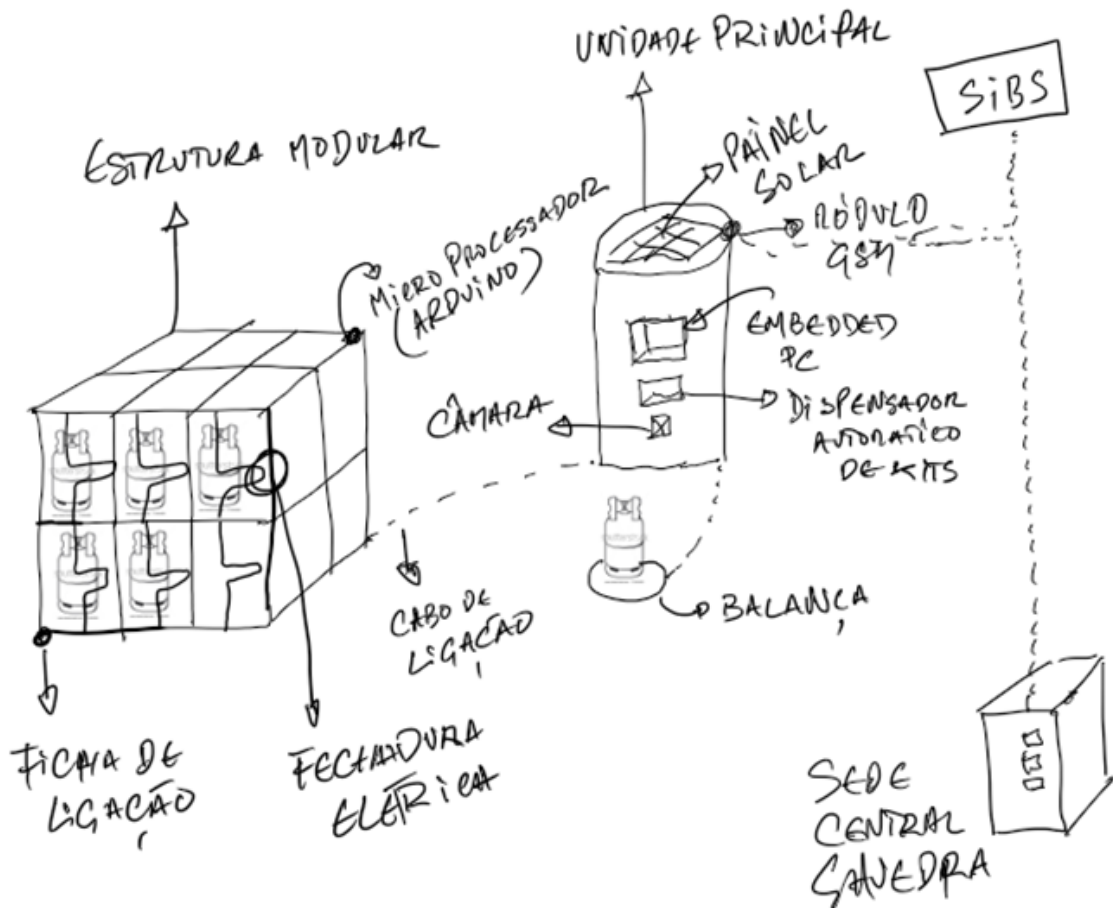 UNIDADE PRINCIPAL
SiBS
ESTRUTURA MODULAR
PAINEL
SOLAR
MICRO PROCESSADOR
(ARDUINO)
MÓDULO
GSM
EMBEDDED
PC
CÂMARA
DISPENSADOR
AUTOMATICO
DE KITS
BALANÇA
CABO DE
LIGAÇÃO
FICHA DE
LIGAÇÃO
FECHADURA
ELÉTRICA
SEDE
CENTRAL
SAVEDRA